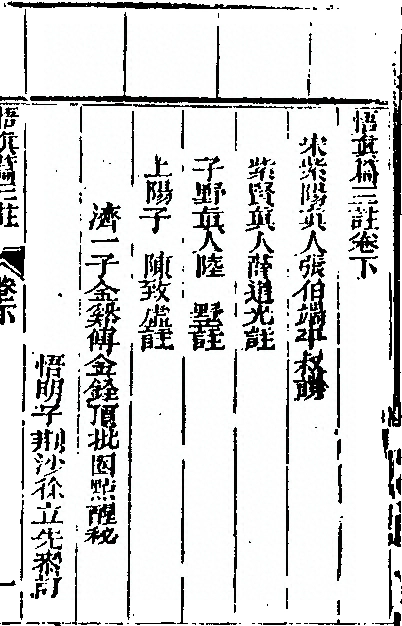 悟真篇三註卷下
宋紫陽真人張伯端平叔譔
紫賢真人薛道光註
子野真人陸　墅註
上陽子　陳致虛註
濟一子金谿傅金銓頂批圈點醒秘
悟明子荆沙徐立先參訂
悟真篇三註　卷下　一